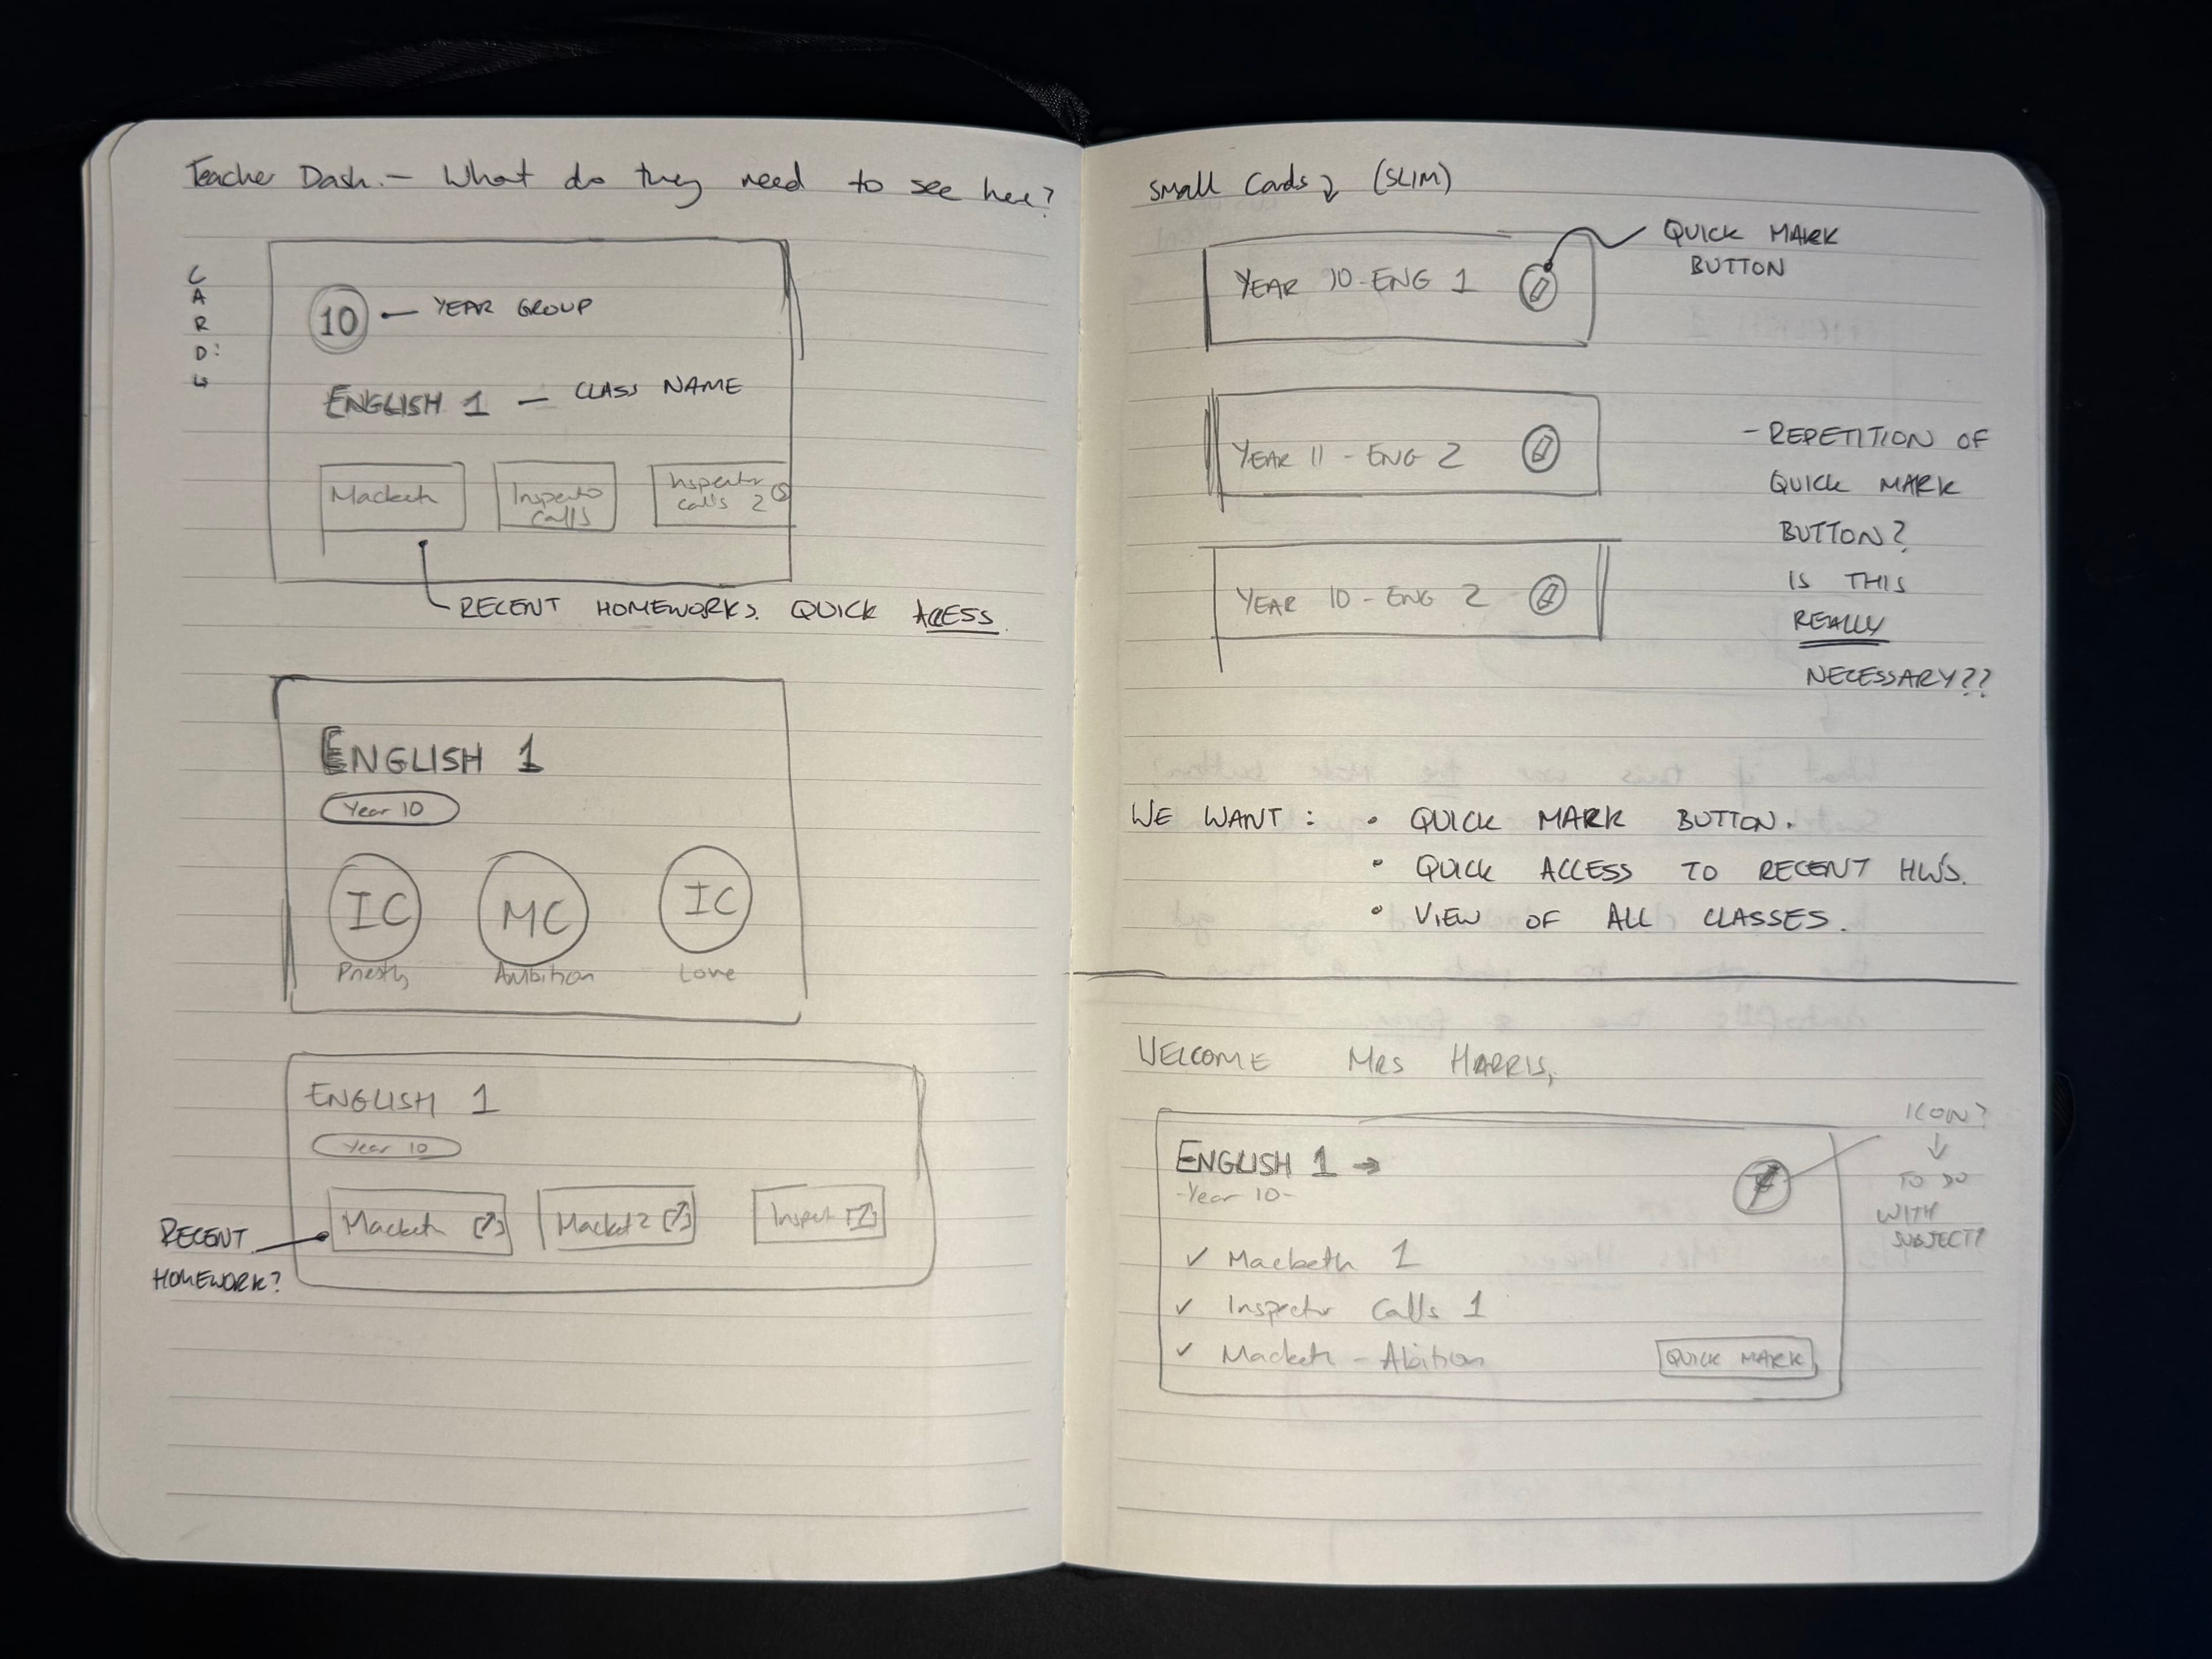 Teacher Dash. - What do they need to see here?
CARD:
10 - YEAR GROUP
ENGLISH 1 - CLASS NAME
Macbeth
Inspector
Calls
Inspector
Calls 2
RECENT HOMEWORKS. QUICK ACESS.
ENGLISH 1
Year 10
IC MC IC
Priestly Ambition Love
ENGLISH 1
Year 10
Macbeth Macbet 2 Inspect
RECENT
HOMEWORK?
Small Cards (SLIM)
QUICK MARK
BUTTON
YEAR 10 - ENG 1
YEAR 11 - ENG 2
YEAR 10 - ENG 2
- REPETITION OF
QUICK MARK
BUTTON?
IS THIS
REALLY
NECESSARY??
WE WANT : • QUICK MARK BUTTON.
• QUICK ACCESS TO RECENT HW'S.
• VIEW OF ALL CLASSES.
WELCOME MRS HARRIS,
ENGLISH 1 →
- Year 10 -
✓ Macbeth 1
✓ Inspector Calls 1
✓ Macbeth - Abition
QUICK MARK
ICON?
↓
TO DO
WITH
SUBJECT?